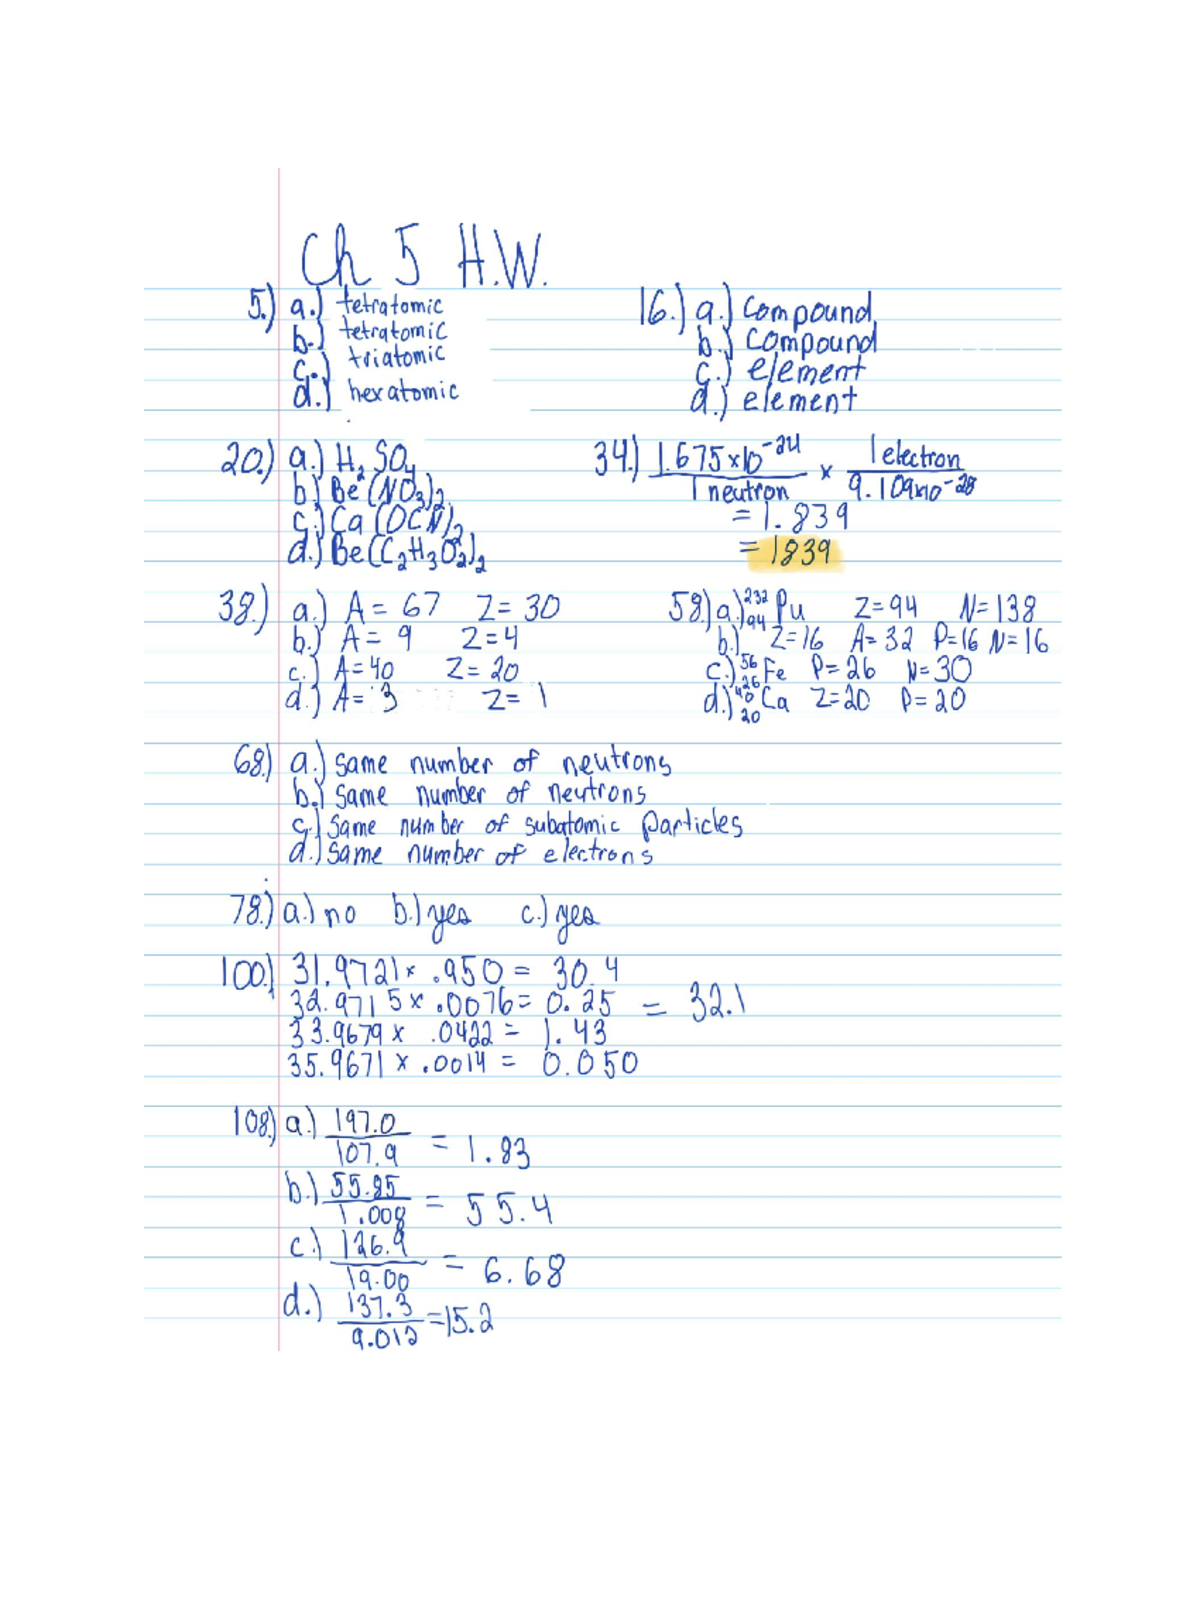 Ch 5 H.W.
5.) a.) tetratomic
b.) tetratomic
c.) triatomic
d.) hexatomic
16.) a.) compound
b.) compound
c.) element
d.) element
20.) a.) H₂SO₄
b.) Be(NO₃)₂
c.) Ca(OCN)₂
d.) Be(C₂H₃O₂)₂
34.) 1.675x10⁻²⁴ / 1 neutron x 1 electron / 9.109x10⁻²⁸
= 1.839
= 1839
38.) a.) A = 67 Z = 30
b.) A = 9 Z = 4
c.) A = 40 Z = 20
d.) A = 3 Z = 1
58.) a.) ²³²₉₄Pu Z = 94 N = 138
b.) Z = 16 A = 32 P = 16 N = 16
c.) ⁵⁶₂₆Fe P = 26 N = 30
d.) ⁴⁰₂₀Ca Z = 20 P = 20
68.) a.) same number of neutrons
b.) same number of neutrons
c.) same number of subatomic particles
d.) same number of electrons
78.) a.) no b.) yes c.) yes
100.) 31.9721 x .950 = 30.4
32.9715 x .0076 = 0.25 = 32.1
33.9679 x .0422 = 1.43
35.9671 x .0014 = 0.050
108.) a.) 197.0 / 107.9 = 1.83
b.) 55.85 / 1.008 = 55.4
c.) 126.9 / 19.00 = 6.68
d.) 137.3 / 9.012 = 15.2